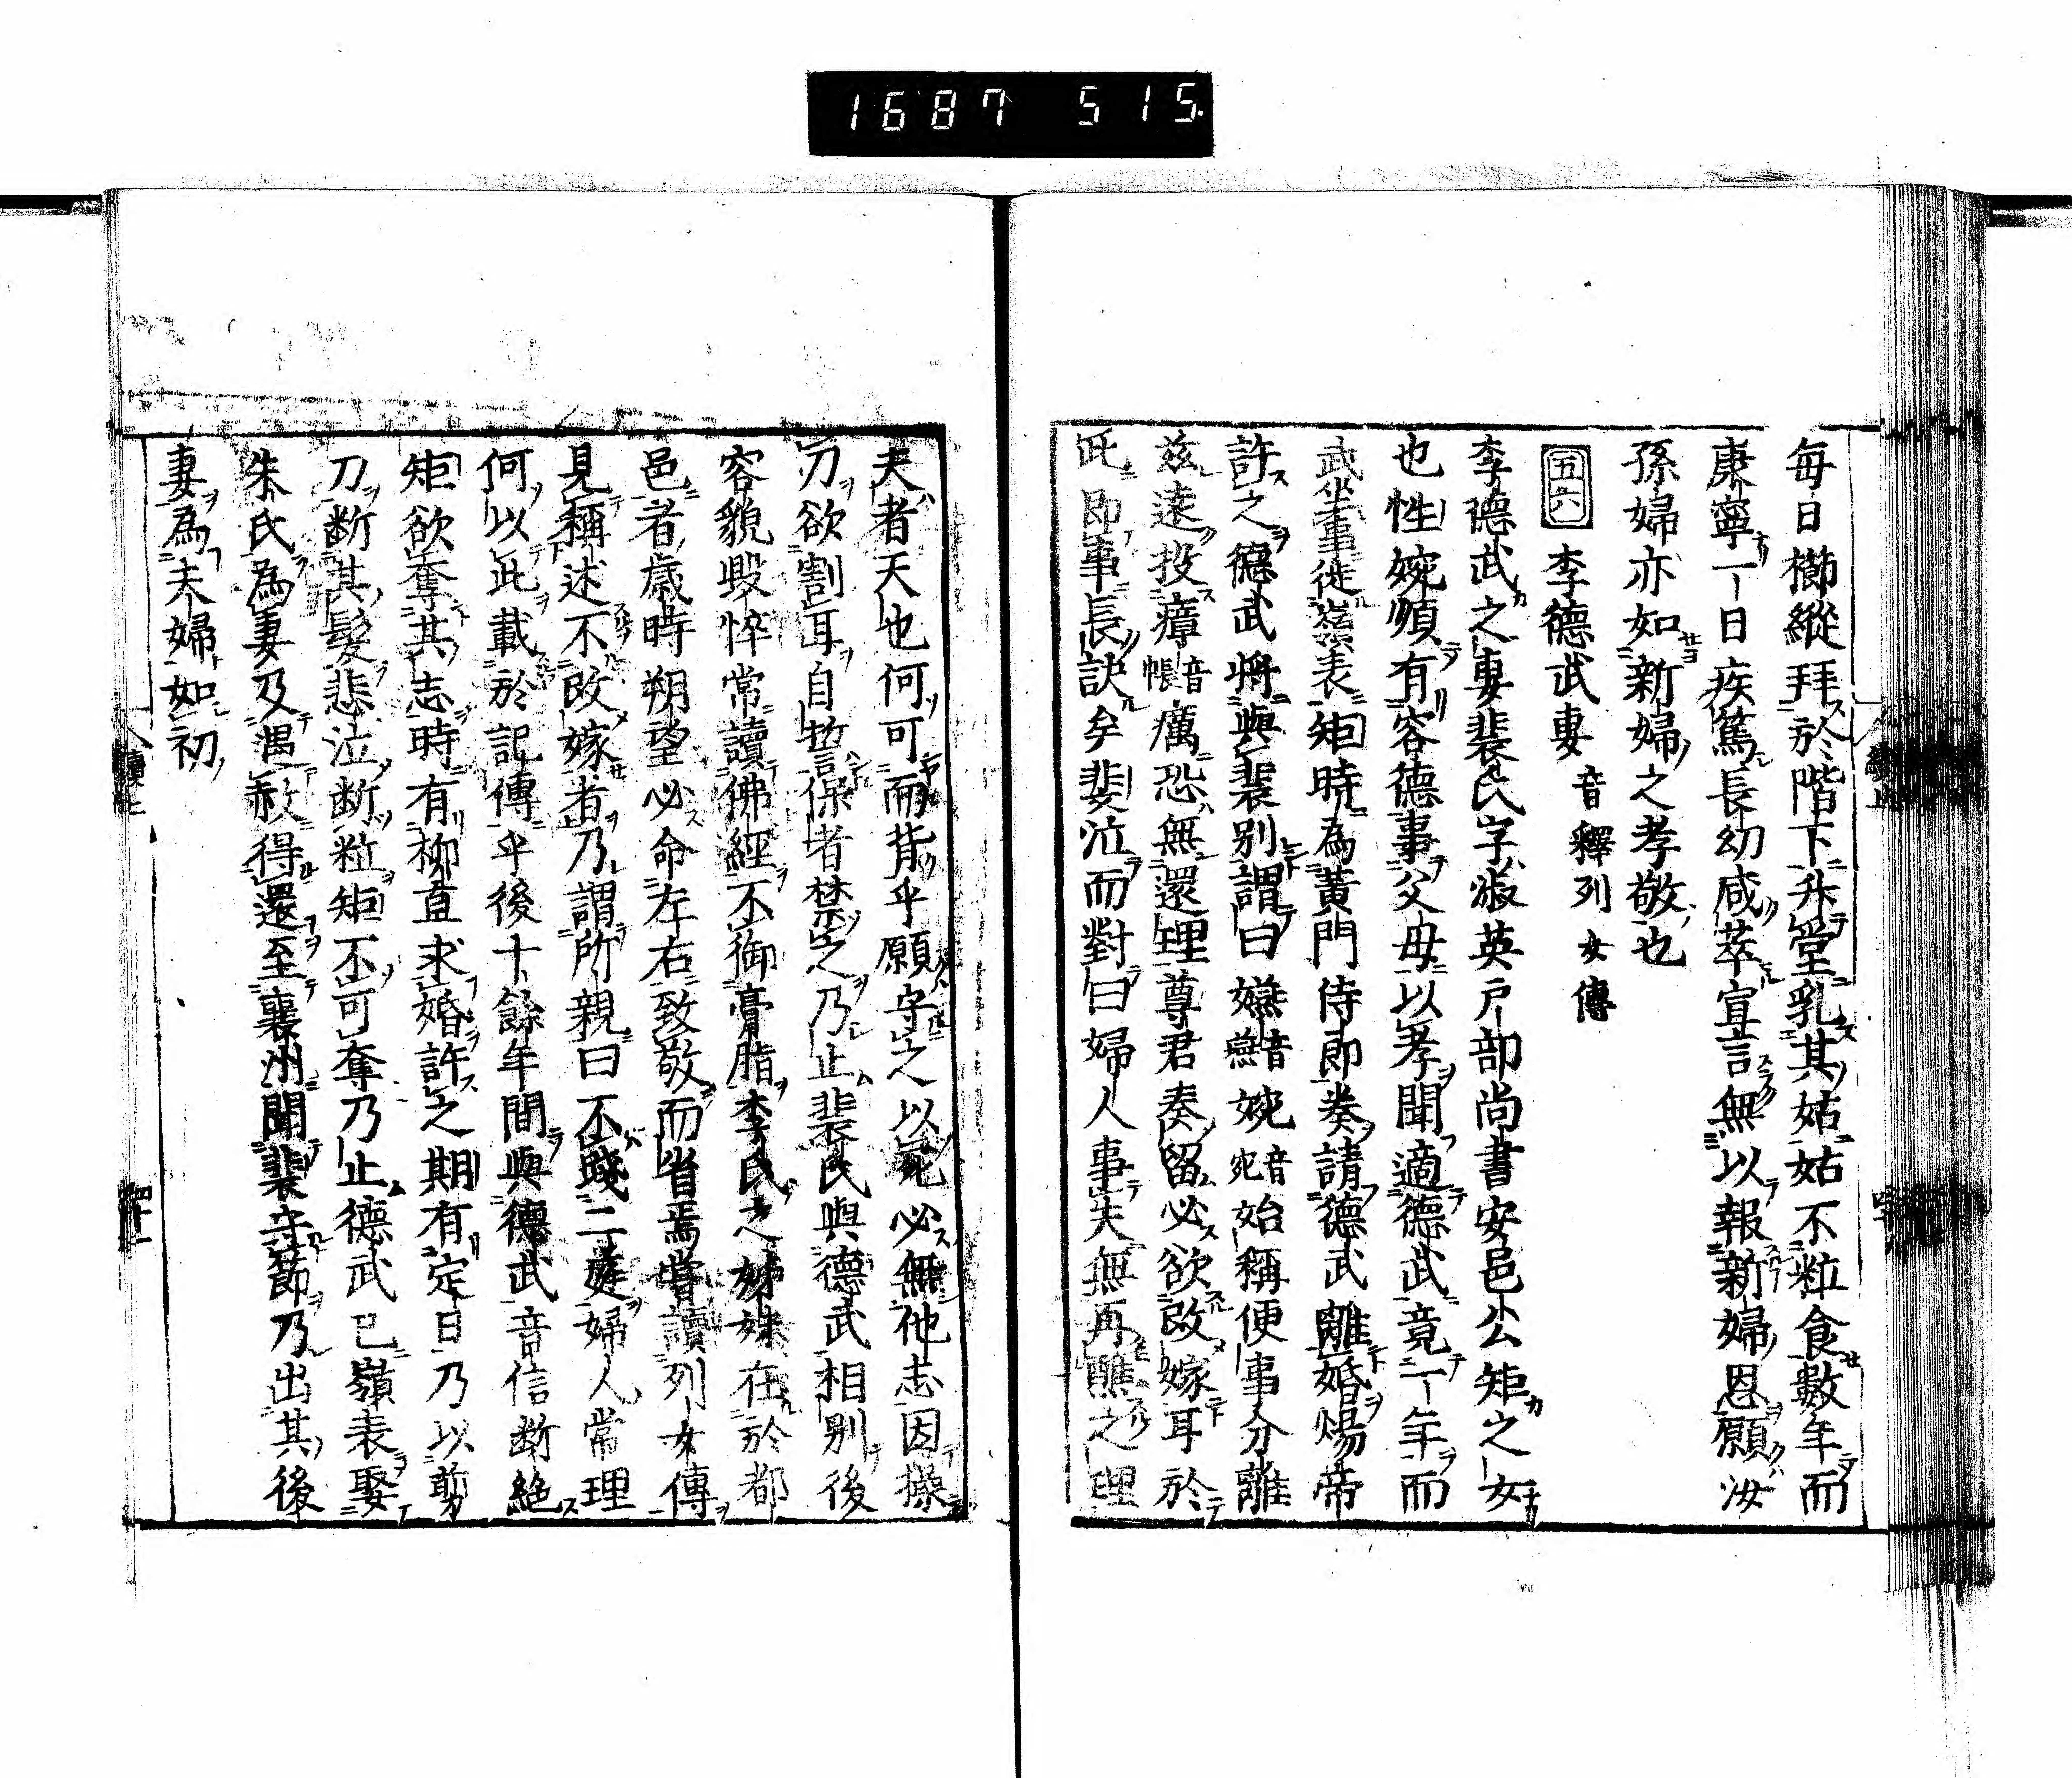 1687 515
每日櫛縰拜於階下升堂乳其姑姑不粒食數年而
康寧一日疾篤長幼咸萃宣言無以報新婦恩願汝
孫婦亦如新婦之孝敬也
五六 李德武妻 音釋列女傳
李德武之妻裴氏字淑英戸部尚書安邑公矩之女
也性婉順有容德事父母以孝聞適德武竟一年而
武坐事徙嶺表矩時為黃門侍郎奏請德武離婚煬帝
許之德武將與裴別謂曰嬿音燕婉音宛始稱便事分離
茲遠投瘴音帳癘恐無還理尊君奏留必欲改嫁耳於
此即事長訣矣裴泣而對曰婦人事夫無再醮之理
夫者天也何可而背乎願守之以死必無他志因操
刀欲割耳自誓保者禁之乃止裴氏與德武相別後
容貌毀悴常讀佛經不御膏脂李氏之姊妹在於都
邑者歲時朔望必命左右致敬而省焉嘗讀列女傳
見稱述不改嫁者乃謂所親曰不踐二庭婦人常理
何以此載於記傳乎後十餘年間與德武音信断絶
矩欲奪其志時有柳直求婚許之期有定日乃以剪
刀断其髮悲泣断粒矩不可奪乃止德武已嶺表娶
朱氏為妻及遇赦得還至襄州聞裴守節乃出其後
妻為夫婦如初